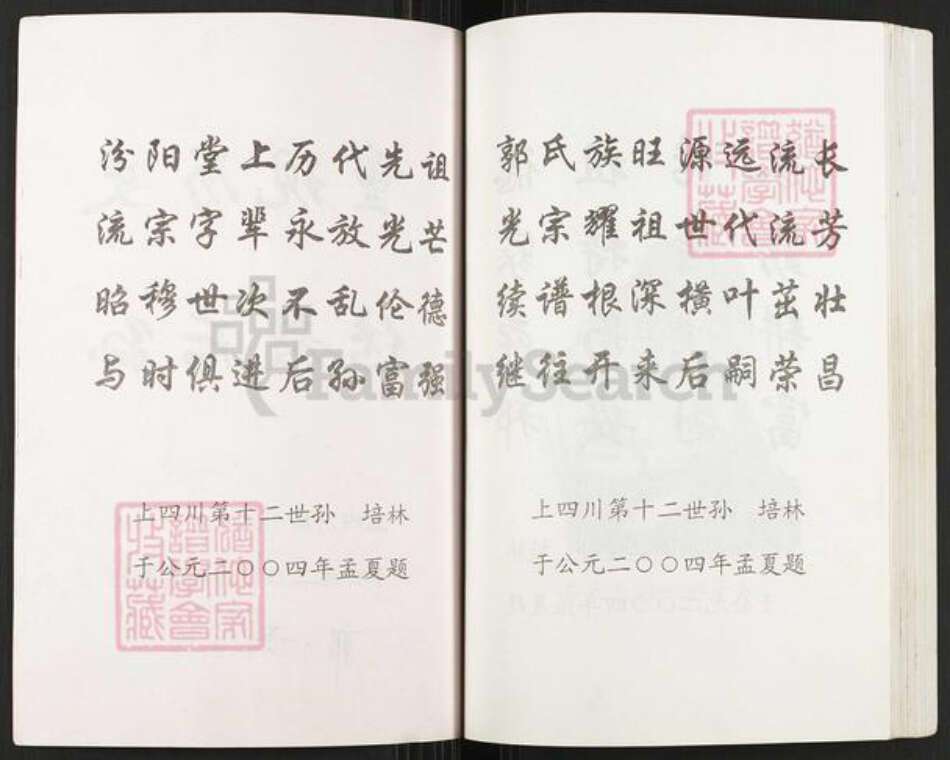 汾阳堂上历代先祖
流宗字辈永放光芒
昭穆世次不乱伦德
与时俱进后孙富强
上四川第十二世孙　培林
于公元二〇〇四年孟夏题
郭氏族旺源远流长
光宗耀祖世代流芳
续谱根深横叶茁壮
继往开来后嗣荣昌
上四川第十二世孙　培林
于公元二〇〇四年孟夏题
FamilySearch